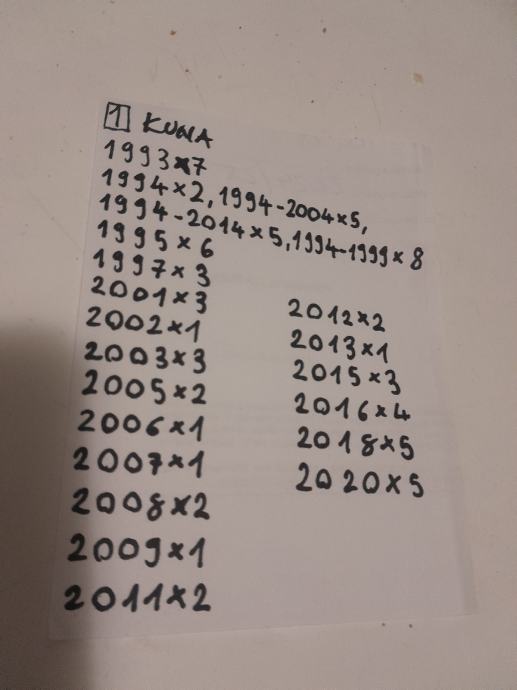 1 KUNA
1993x7
1994x2, 1994-2004x5,
1994-2014x5, 1994-1999x8
1995x6
1997x3
2001x3
2002x1
2003x3
2005x2
2006x1
2007x1
2008x2
2009x1
2011x2
2012x2
2013x1
2015x3
2016x4
2018x5
2020x5